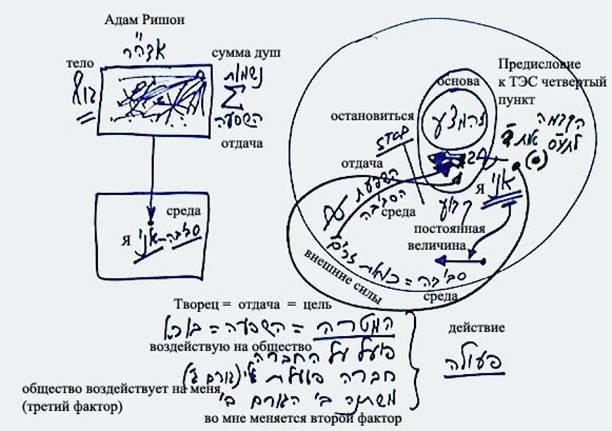 Адам Ришон
אדה"ר
тело
גוף
сумма душ
נשמות
Σ
השפעה
отдача
среда
Я
סביבה
אני
Предисловие
к ТЭС четвертый
пункт
הקדמה
לתע"ס
основа
המצע
остановиться
STOP
отдача
השפעת
הסביבה
среда
Я
אני
קבוע
постоянная
величина
внешние силы
סביבה = כוחות זרים
среда
Творец = отдача = цель
המטרה = השפעה = בורא
воздействую на общество
פועל על החברה
חברה פועלת עלי (גורם ג')
общество воздействует на меня
(третий фактор)
משתנה בי הגורם ב'
во мне меняется второй фактор
действие
פעולה